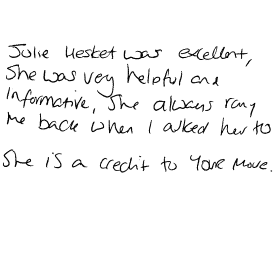 Julie Hesket was excellent,
She was very helpful and
Informative, She always rang
me back when I asked her to
She is a credit to Your Move.